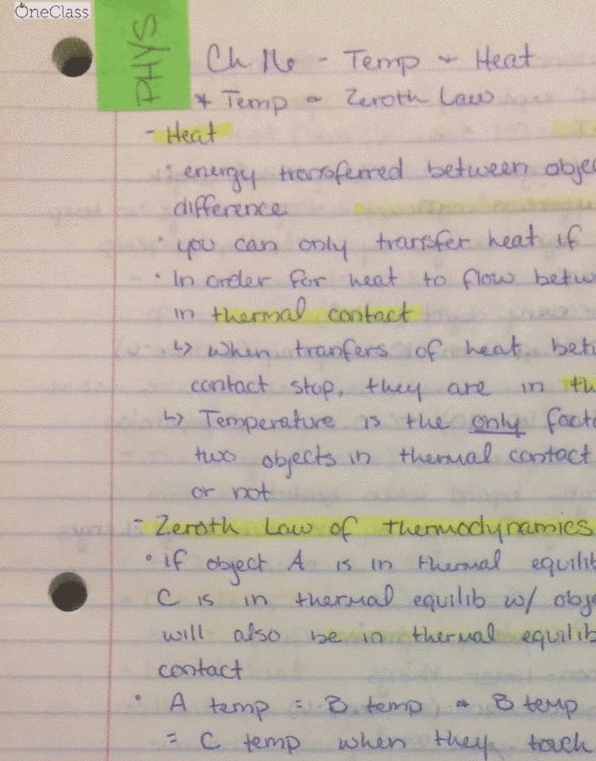 OneClass
PHYS
Ch. 16 - Temp + Heat
* Temp + Zeroth Law
- Heat
: energy transferred between obje
difference
• you can only transfer heat if
• In order for heat to flow betw
in thermal contact
↳ when tranfers of heat betw
contact stop, they are in th
↳ Temperature is the only facto
two objects in thermal contact
or not
- Zeroth Law of thermodynamics
• if object A is in thermal equilib
C is in thermal equilib w/ obje
will also be in thermal equilib
contact
• A temp = B temp + B temp
= C temp when they touch